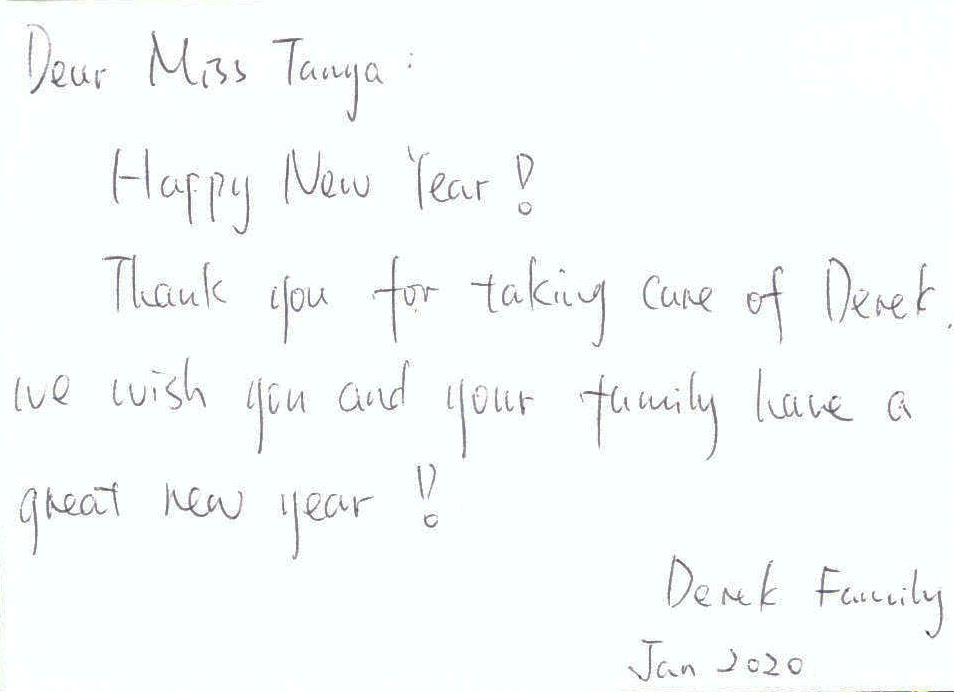 Dear Miss Tanya :
Happy New Year !
Thank you for taking care of Derek.
we wish you and your family have a
great new year !
Derek Family
Jan 2020